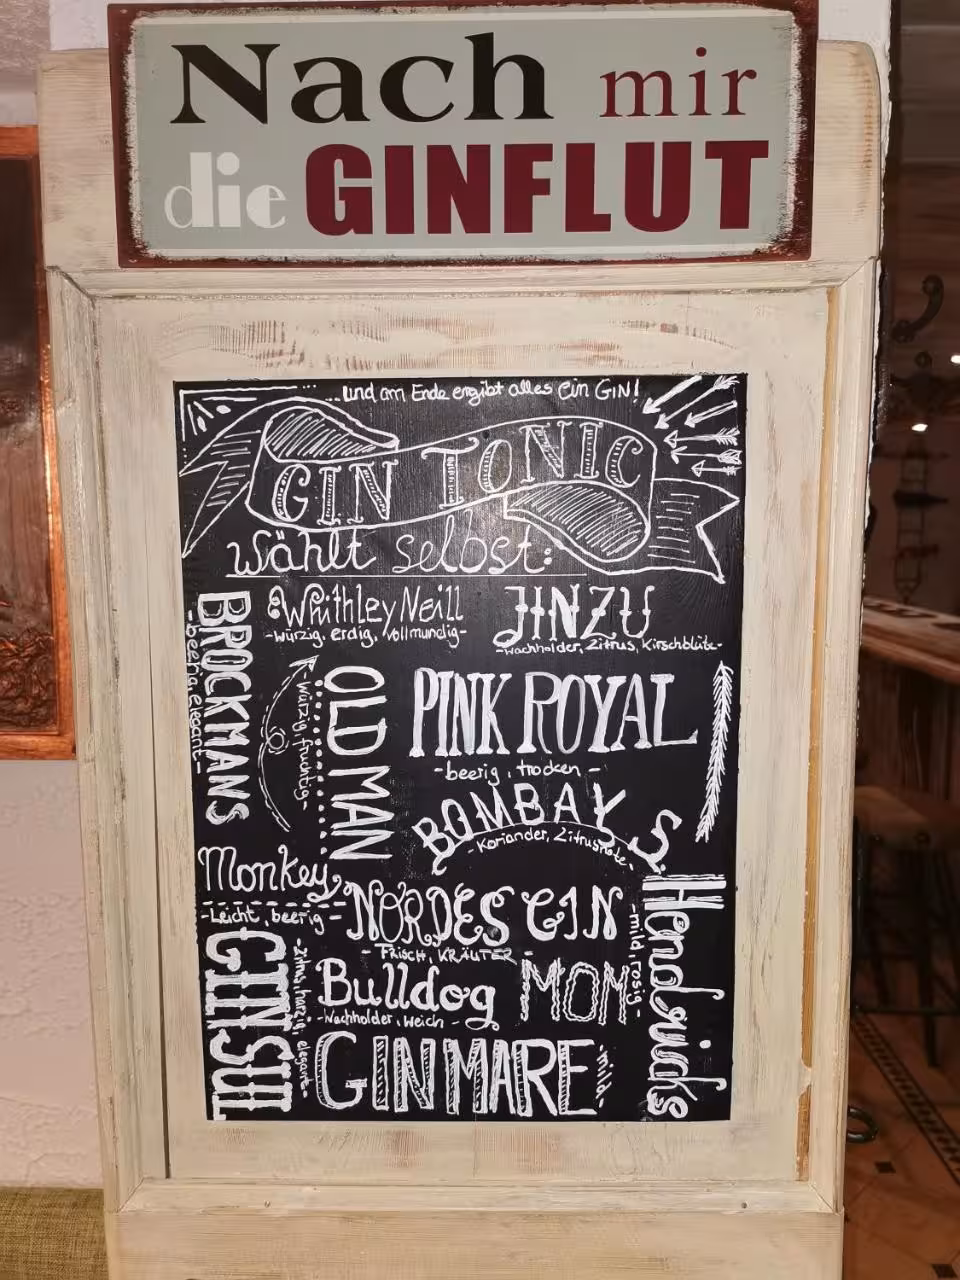 Nach mir
die GINFLUT
...und am Ende ergibt alles ein GIN!
GIN TONIC
wählt selbst:
Whithley Neill
-würzig, erdig, vollmundig-
JINZU
-wachholder, Zitrus, Kirschblüte-
BROCKMANS
-beerig, elegant-
OLD MAN
-würzig, fruchtig-
PINK ROYAL
-beerig, trocken-
BOMBAY S.
-Koriander, Zitrusnote-
Monkey
-Leicht, beerig-
NORDES GIN
-FRISCH, KRÄUTER-
Hendricks
-mild, rosig-
GINSUL
-Zitrus, harzig, elegant-
Bulldog
-Wachholder, Weich-
MOM
GIN MARE